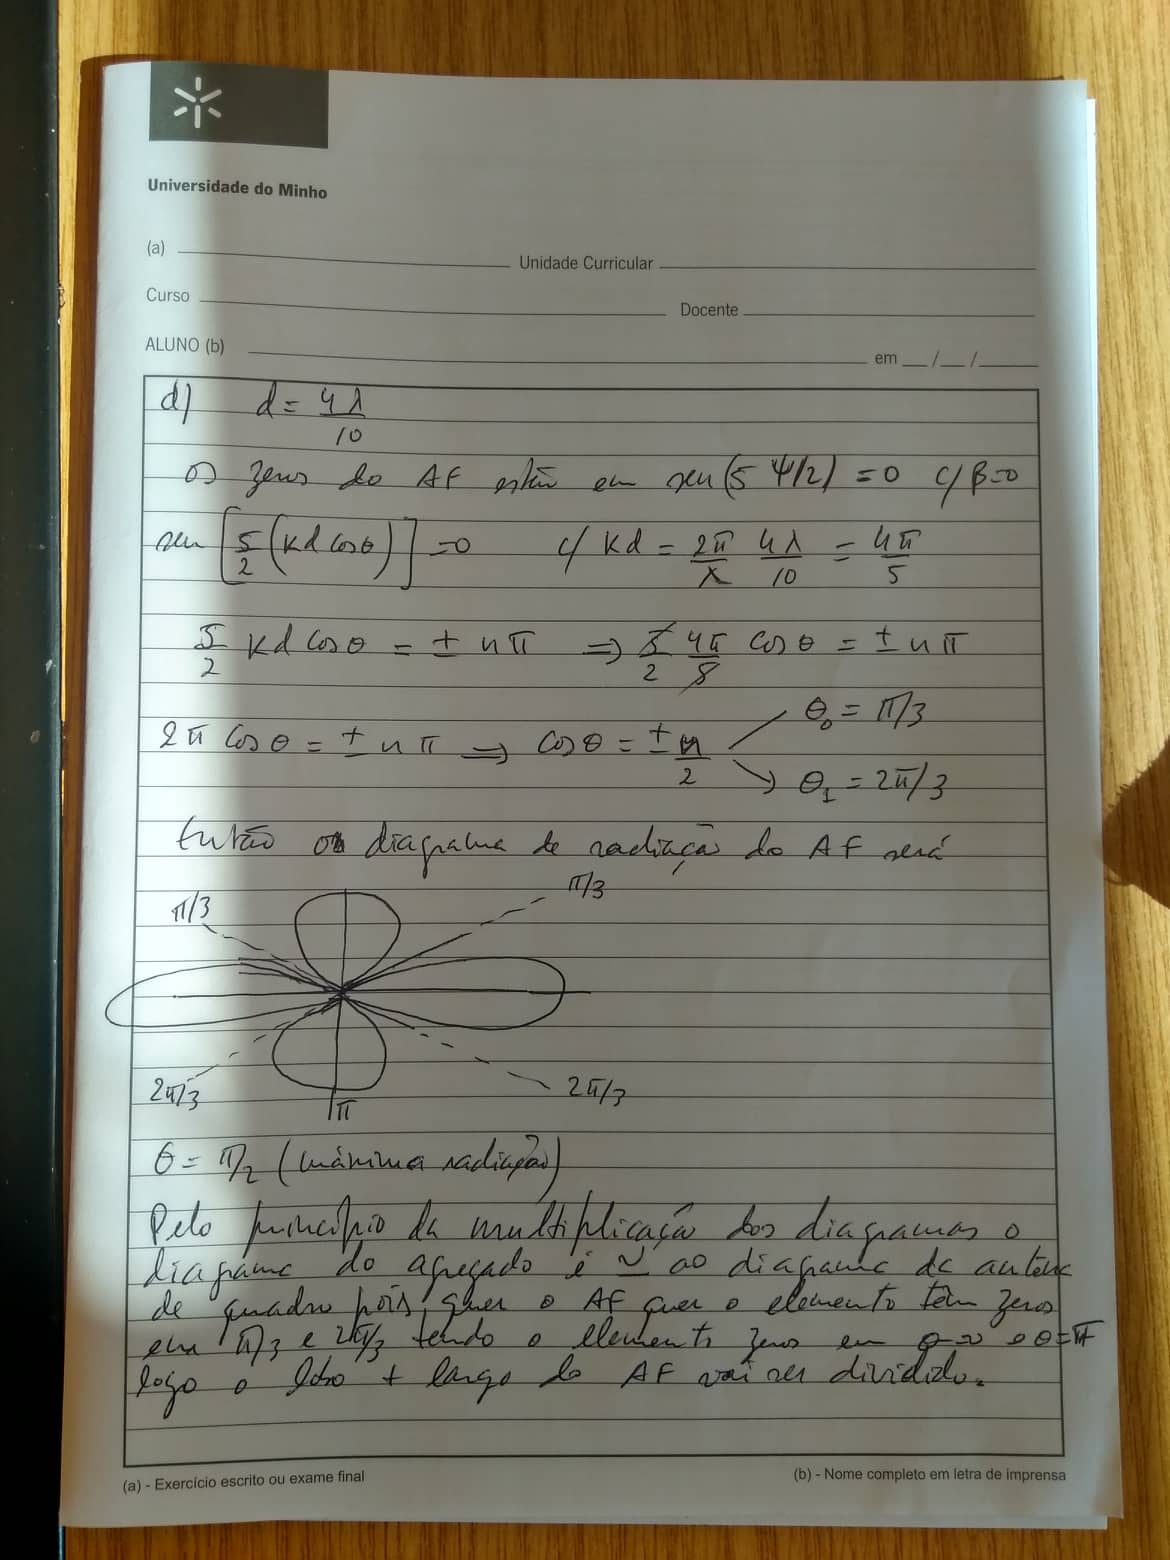 Universidade do Minho
(a) Unidade Curricular
Curso Docente
ALUNO (b) em __/__/__
d) d = 4λ/10
os zeros do AF estão em sen(5 Ψ/2) = 0 c/ β=0
sen [5/2 (kd cosθ)] = 0 c/ kd = 2π/λ 4λ/10 = 4π/5
5/2 kd cosθ = ± nπ ⇒ 5/2 4π/5 cosθ = ± nπ
2π cosθ = ± nπ ⇒ cosθ = ± n/2
θ₀ = π/3
θ₁ = 2π/3
Então o diagrama de radiação do AF será
π/3 π/3
2π/3 2π/3
π
θ = π/2 (máxima radiação)
Pelo princípio da multiplicação dos diagramas o
diagrama do agregado é ≃ ao diagrama da antena
de quadro pois, quer o AF quer o elemento têm zeros
em π/3 e 2π/3 tendo o elemento zeros em θ=0 e θ=π
logo o lobo + largo do AF vai ser dividido.
(a) - Exercício escrito ou exame final (b) - Nome completo em letra de imprensa